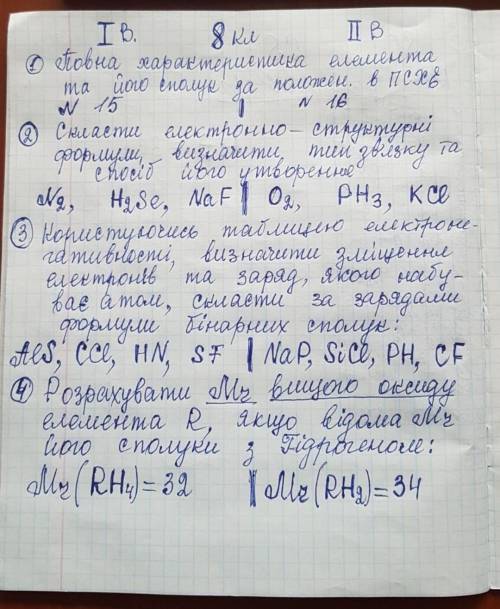 I В. 8 кл II В
1 Повна характеристика елемента
та його сполук за положен. в ПСХЕ
N 15 | N 16
2 Скласти електронно-структурні
формули, визначити тип зв'язку та
спосіб його утворення
N2, H2Se, NaF | O2, PH3, KCl
3 Користуючись таблицею електроне-
гативності, визначити зміщення
електронів та заряд, якого набу-
ває атом, скласти за зарядами
формули бінарних сполук:
AlS, CCl, HN, SF | NaP, SiCl, PH, CF
4 Розрахувати Mr вищого оксиду
елемента R, якщо відома Mr
його сполуки з Гідрогеном:
Mr(RH4)=32 | Mr(RH2)=34